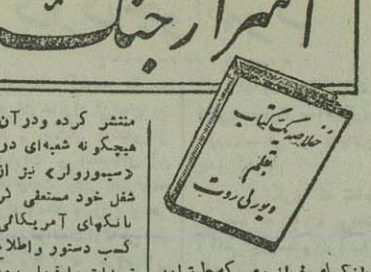 اسرار جنگ
خلاصه یک کتاب
بقلم
دیورلی روت
منتشر کرده ودر آن
هیچگونه شعبه‌ای در
«سیمورولر» نیز از
شغل خود مستعفی
بانکهای آمریکائی
کسب دستور واطلاع